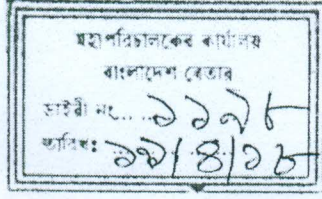 মহাপরিচালকের কার্যালয়
বাংলাদেশ বেতার
ডাইরী নং..... ১১৭৮
তারিখঃ ১৭/৪/১৮